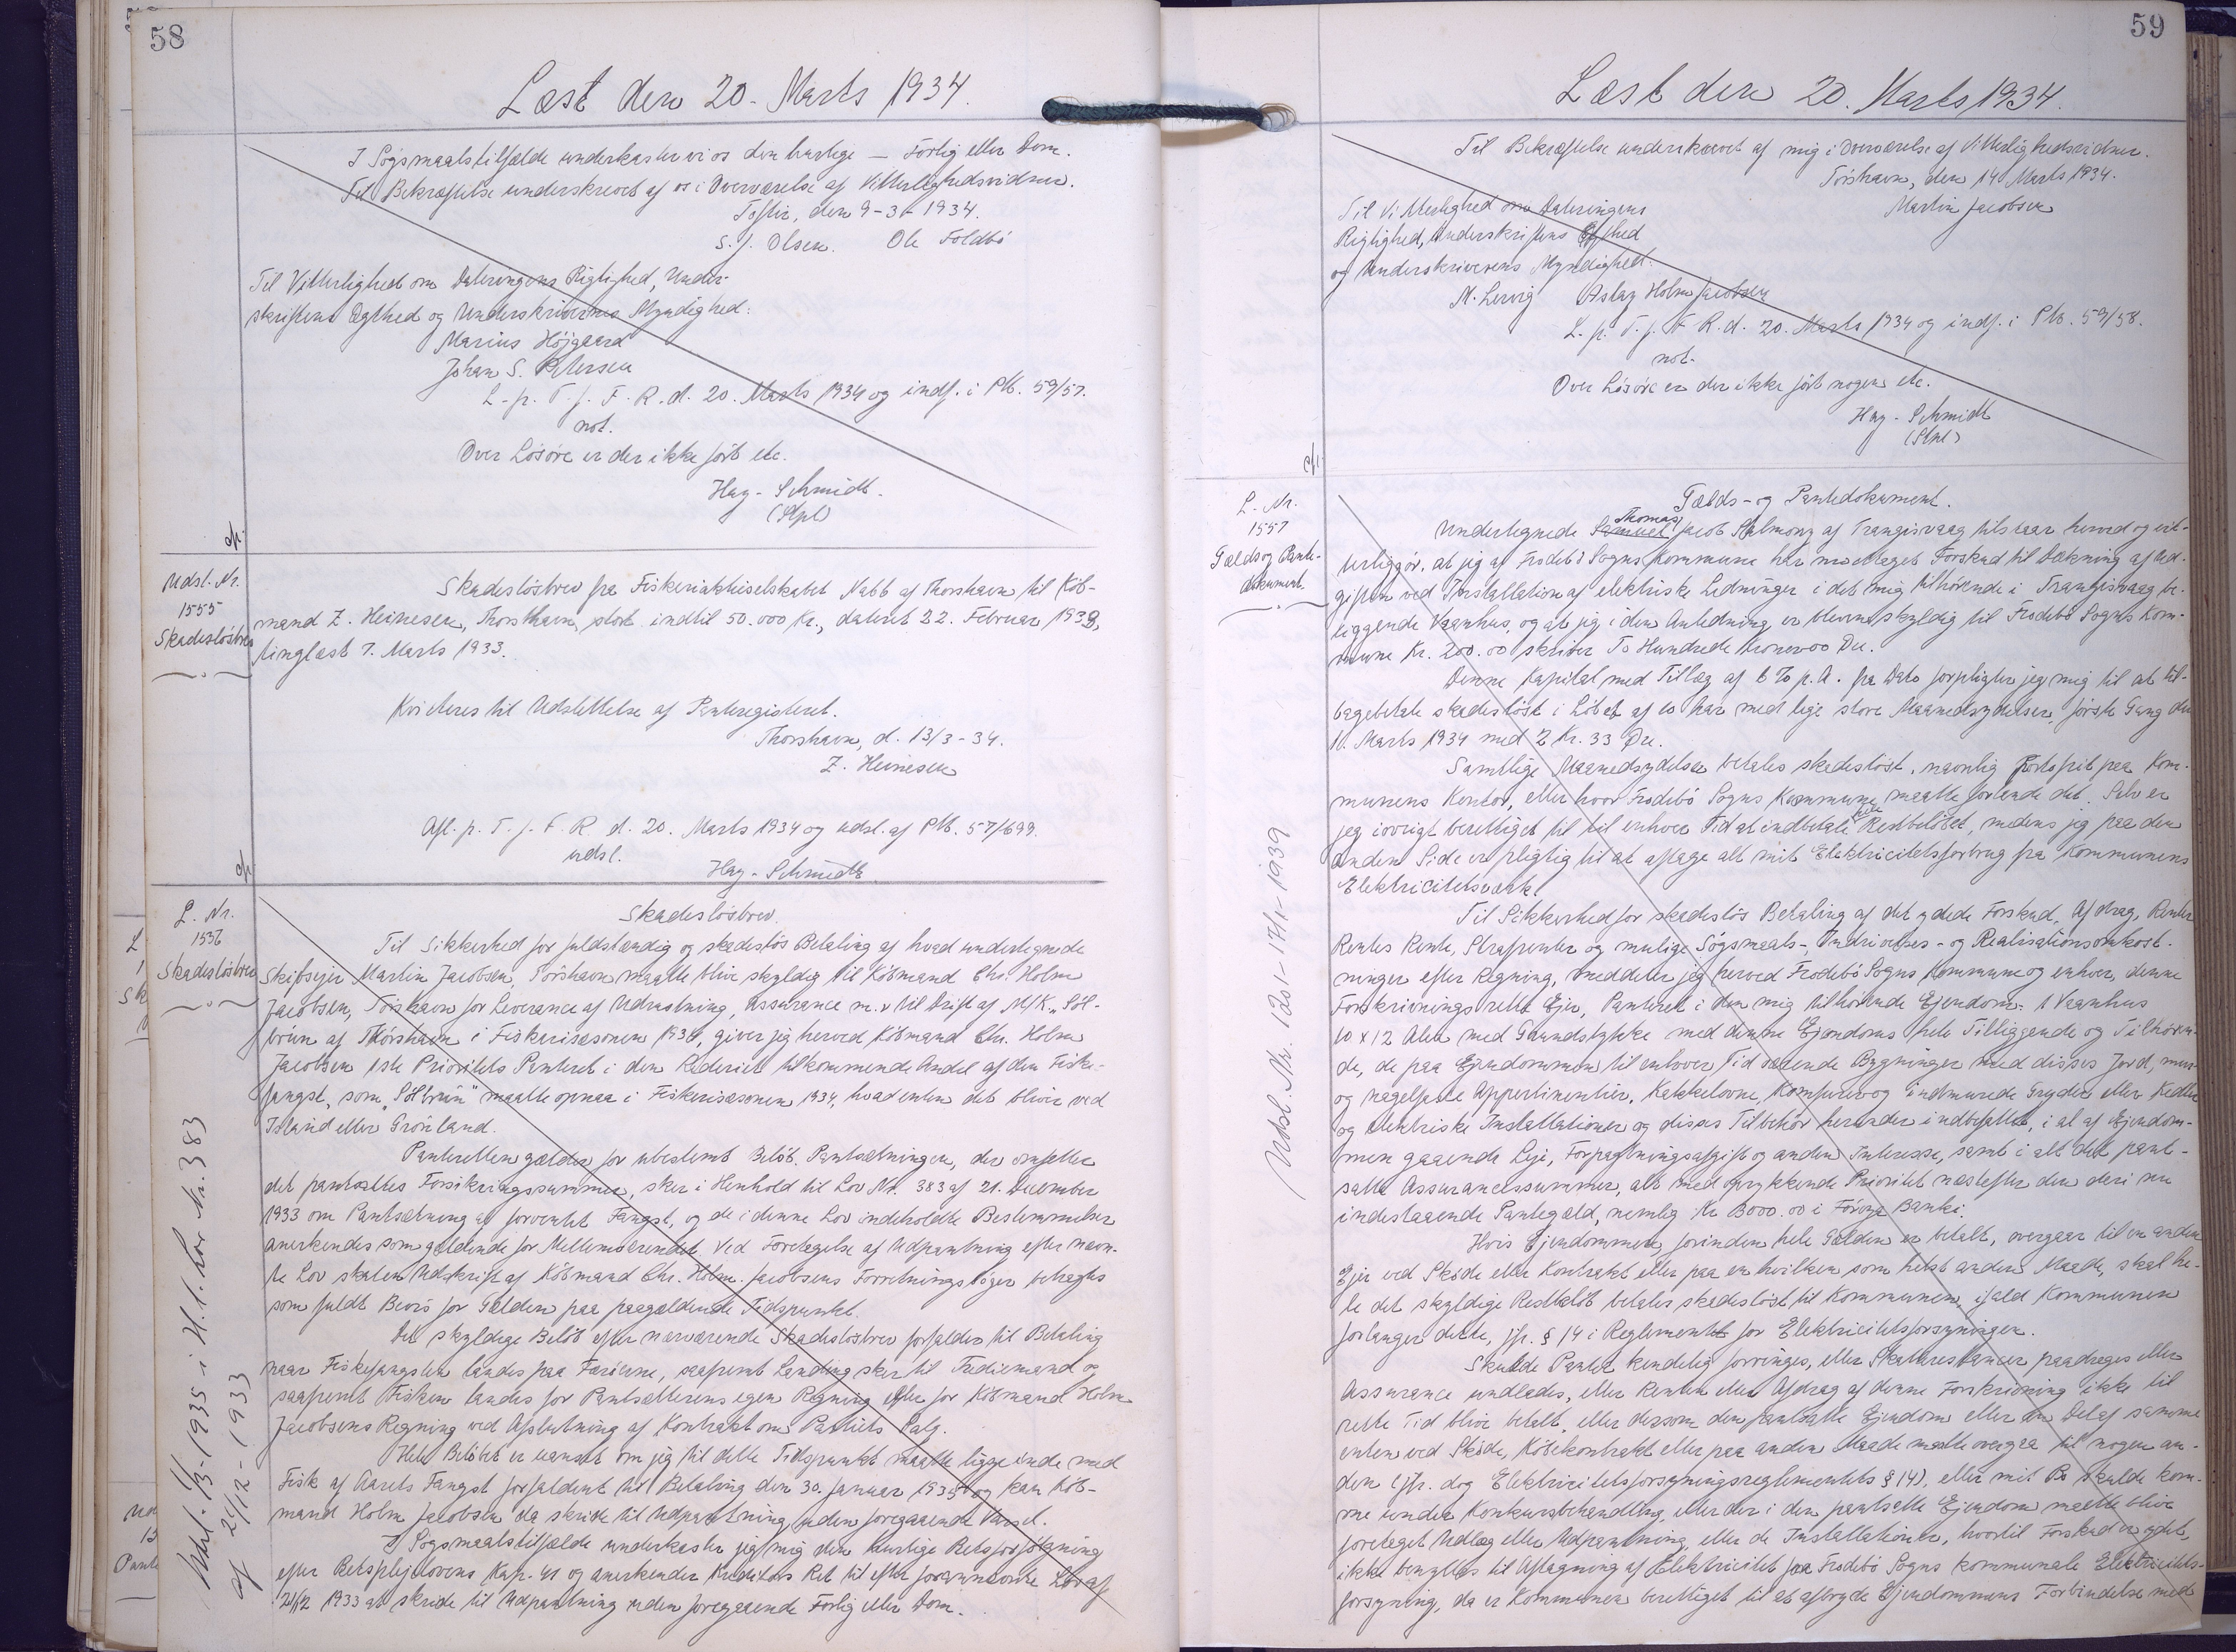 58
Læst den 20. Marts 1934.
I Søgsmaalstilfælde underkaster vi os den hurtige — Forlig eller Dom.
Til Bekræftelse underskrevet af os i Overværelse af Vitterlighedsvidner.
Toftir, den 9-3-1934.
S. J. Olsen. Ole Foldbó
Til Vitterlighed om Dateringens Rigtighed, Under-
skriftens Ægthed og Underskrivernes Myndighed:
Marius Højgaard
Johan S. Petersen
L. p. T. f. F. R. d. 20. Marts 1934 og indf. i Ptb. 59/57.
not.
Over Løsøre er der ikke ført etc.
Hay-Schmidt.
(Stpl)
cfr.
Udsl. Nr.
1555
Skadesløsbrev
Skadesløsbrev fra Fiskeriaktieselskabet Nabb af Thorshavn til Køb-
mand Z. Heinesen, Thorshavn, stort indtil 50.000 Kr., dateret 22. Februar 1933,
tinglæst 7. Marts 1933.
Kviteres til Udslettelse af Panteregisteret.
Thorshavn, d. 13/3-34.
Z. Heinesen
Afl. p. T. f. F. R. d. 20. Marts 1934 og udsl. af Ptb. 57/699.
udsl.
Hay-Schmidt
cfr.
L. Nr.
1556
Skadesløsbrev
Skadesløsbrev.
Til Sikkerhed for fuldstændig og skadesløs Betaling af hvad undertegnede
Skibsejer Martin Jacobsen, Tórshavn maatte blive skyldig til Købmand Chr. Holm
Jacobsen, Tórshavn for Leverance af Udrustning, Assurance m.v. til Drift af M/K „Sól-
brún af Thórshavn i Fiskerisæsonen 1934, giver jeg herved Købmand Chr. Holm
Jacobsen 1ste Prioritets Panteret i den Rederiet tilkommende Andel af den Fiske-
fangst, som „Sólbrún" maatte opnaa i Fiskerisæsonen 1934, hvad enten det bliver ved
Island eller Grønland.
Panteretten gælder for ubestemt Beløb. Pantsætningen, der omfatter
det pantsattes Forsikringssummer, sker i Henhold til Lov Nr. 383 af 21. December
1933 om Pantsætning af forventet Fangst, og de i denne Lov indeholdte Bestemmelser
anerkendes som gældende for Mellemværendet. Ved Foretagelse af Udpantning efter nævn-
te Lov skal en Udskrift af Købmand Chr. Holm Jacobsens Forretningsbøger betragtes
som fuldt Bevis for Gælden paa paagældende Tidspunkt.
Det skyldige Beløb efter nærværende Skadesløsbrev forfalder til Betaling
naar Fiskefangsten landes paa Færøerne, saafremt Landing sker til Trediemand og
saafremt Fisken landes for Pantsætterens egen Regning eller for Købmand Holm
Jacobsens Regning ved Afslutning af Kontrakt om Partiets Salg.
Hele Beløbet er uanset om jeg til dette Tidspunkt maatte ligge inde med
Fisk af Aarets Fangst forfaldent til Betaling den 30. Januar 1935 og kan Køb-
mand Holm Jacobsen da skride til Udpantning uden foregaaende Varsel.
I Søgsmaalstilfælde underkaster jeg mig den hurtige Retsforfølgning
efter Retsplejelovens Kap. 41 og anerkender Kreditors Ret til efter forannævnte Lov af
21/12 1933 at skride til Udpantning uden foregaaende Forlig eller Dom.
Udsl. 1/3-1935 i H. t. Lov Nr. 383
af 21/12-1933
59
Læst den 20. Marts 1934.
Til Bekræftelse underskrevet af mig i Overværelse af Vitterlighedsvidner.
Tórshavn, den 14 Marts 1934.
Martin Jacobsen
Til Vitterlighed om Dateringens
Rigtighed, Underskriftens Ægthed
og Underskriverens Myndighed:
M. Lervig Aslag Holm Jacobsen
L. p. T. f. F. R. d. 20. Marts 1934 og indf. i Ptb. 59/58.
not.
Over Løsøre er der ikke ført nogen etc.
Hay-Schmidt
(Stpl)
cfr.
L. Nr.
1557
Gælds og Pante-
dokument.
Gælds- og Pantedokument.
Undertegnede Samuel Thomas Jacob Salmony af Trangisvaag tilstaar herved og vit-
terliggør, at jeg af Frodebø Sogns Kommune har modtaget Forskud til Dækning af Ud-
giften ved Installation af elektriske Ledninger i det mig tilhørende i Trangisvaag be-
liggende Vaanhus, og at jeg i den Anledning er bleven skyldig til Frodebø Sogns Kom-
mune Kr. 200.00 skriver To Hundrede Kroner 00 Øre.
Denne Kapital med Tillæg af 6 % p. A. fra Dato forpligter jeg mig til at til-
bagebetale skadesløst i Løbet af 10 Aar med lige store Maanedsydelser, første Gang den
10. Marts 1934 med 2 Kr. 33 Øre.
Samtlige Maanedsydelser betales skadesløst, navnlig portofrit paa Kom-
munens Kontor, eller hvor Frodebø Sogns Kommune maatte forlange det. Selv er
jeg iøvrigt berettiget til til enhver Tid at indbetale hele Restbeløbet, medens jeg paa den
anden Side er pligtig til at aftage alt mit Elektricitetsforbrug fra Kommunens
Elektricitetsværk.
Til Sikkerhed for skadesløs Betaling af det ydede Forskud, Afdrag, Renter
Rentes Rente, Strafrenter og mulige Søgsmaals-, Inddrivelses- og Realisationsomkost-
ninger efter Regning, meddeler jeg herved Frodebø Sogns Kommune og enhver, denne
Forskrivnings rette Ejer, Panteret i den mig tilhørende Ejendom: 1 Vaanhus
10 x 12 Alen med Grundstykke med denne Ejendoms hele Tilliggende og Tilhøren-
de, de paa Ejendommen til enhver Tid værende Bygninger med disses Jord, mur-
og nagelfaste Appertinentier, Kakkelovne, Komfurer og indmurede Gryder eller Kedler
og elektriske Installationer og disses Tilbehør herunder indbefattet, i al af Ejendom-
men gaaende Leje, Forpagtningsafgift og anden Interesse, samt i alt det pant-
satte Assurancessummer, alt med oprykkende Prioritet næstefter den deri nu
indestaaende Pantegæld, nemlig Kr 3000.00 i Føroya Banki.
Hvis Ejendommen, forinden hele Gælden er betalt, overgaar til en anden
Ejer ved Skøde eller Kontrakt eller paa en hvilken som helst anden Maade, skal he-
le det skyldige Restbeløb betales skadesløst til Kommunen, ifald Kommunen
forlanger dette, jfr. § 14 i Reglementet for Elektricitetsforsyningen.
Skulde Pantet kendelig forringes, eller Skatterestancer paadrages eller
Assurance undlades, eller Renten eller Afdrag af denne Forskrivning ikke til
rette Tid blive betalt, eller dersom den pantsatte Ejendom eller en Del af samme
enten ved Skøde, Købekontrakt eller paa anden Maade maatte overgaa til nogen an-
den (jfr. dog Elektricitetsforsyningsreglementets § 14), eller mit Bo skulde kom-
me under Konkursbehandling, eller der i den pantsatte Ejendom maatte blive
foretaget Udlæg eller Udpantning, eller de Installationer, hvortil Forskud er ydet,
ikke benyttes til Aftagning af Elektricitet fra Frodebø Sogns kommunale Elektricitets-
forsyning, da er Kommunen berettiget til at afbryde Ejendommens Forbindelse med
Udsl. Nr. 1201-17/1-1939